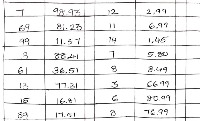 7 98.93 12 2.99
69 81.23 11 6.97
99 11.37 14 1.45
3 88.21 7 5.80
61 36.51 8 8.49
13 77.31 3 66.99
15 16.81 6 80.09
89 17.01 8 72.99